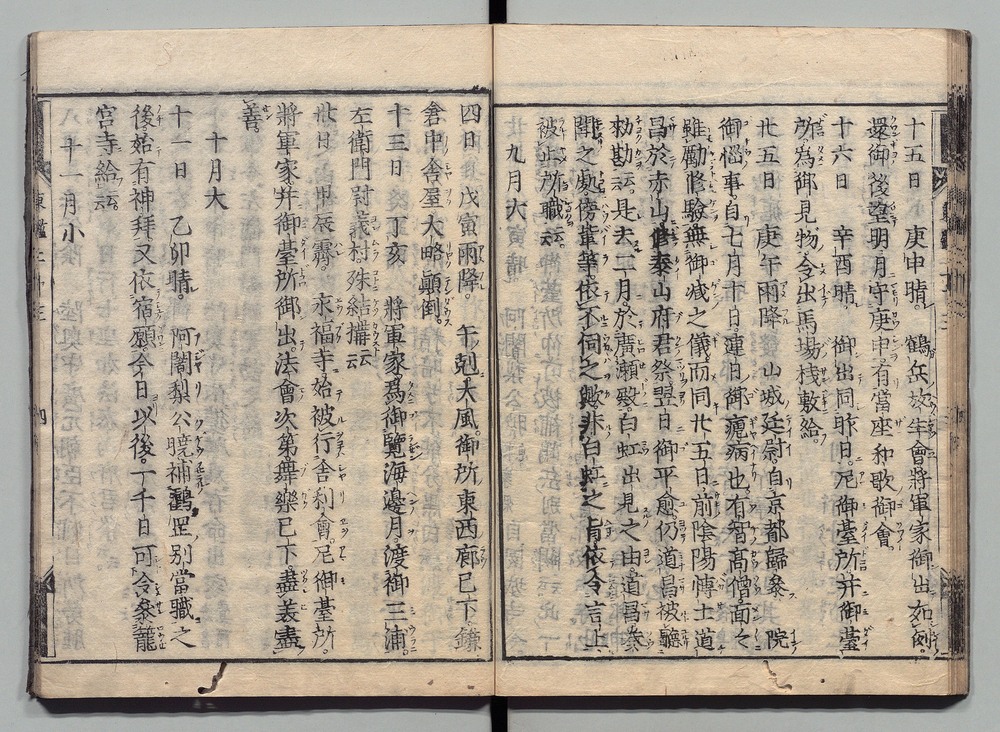 十五日 庚申晴。鶴岳放生會將軍家御出如例
還御後望明月守庚申有當座和歌御會
十六日 辛酉晴。御出同昨日。尼御臺所并御臺
所為御見物令出馬場棧敷給。
廿五日 庚午雨降。山城廷尉自京都歸參 院
御惱事。自七月十日連日御瘧病也有智高僧面々
雖勵修驗無御減之儀而同廿五日前陰陽博士道
昌於赤山修泰山府君祭翌日御平愈。仍道昌被聽
勅勘云。是去二月於廣瀬殿。白虹出見之由。道昌奏
聞之處。傍輩等依不伺之歟非白虹之旨依令言上
被止所職云云。
九月大
四日 戊寅雨降。午剋大風。御所東西廊已下鎌
倉中舎屋大略顚倒。
十三日 丁亥 將軍家爲御覽海邊月。渡御三浦
左衛門尉義村殊結搆云云
廿日 甲辰霽。永福寺始被行舎利會。尼御臺所。
將軍家并御臺所御出。法會次第舞樂已下。盡美盡
善。
十月大
十一日 乙卯晴。阿闍梨公曉補鶴岳別當職之
後。始有神拜又依宿願今日以後。一千日可令參籠
宮寺給云云。
十一月小
東鑑二十三
四